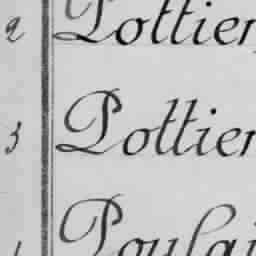 2 Pottier
3 Pottier
Poulai